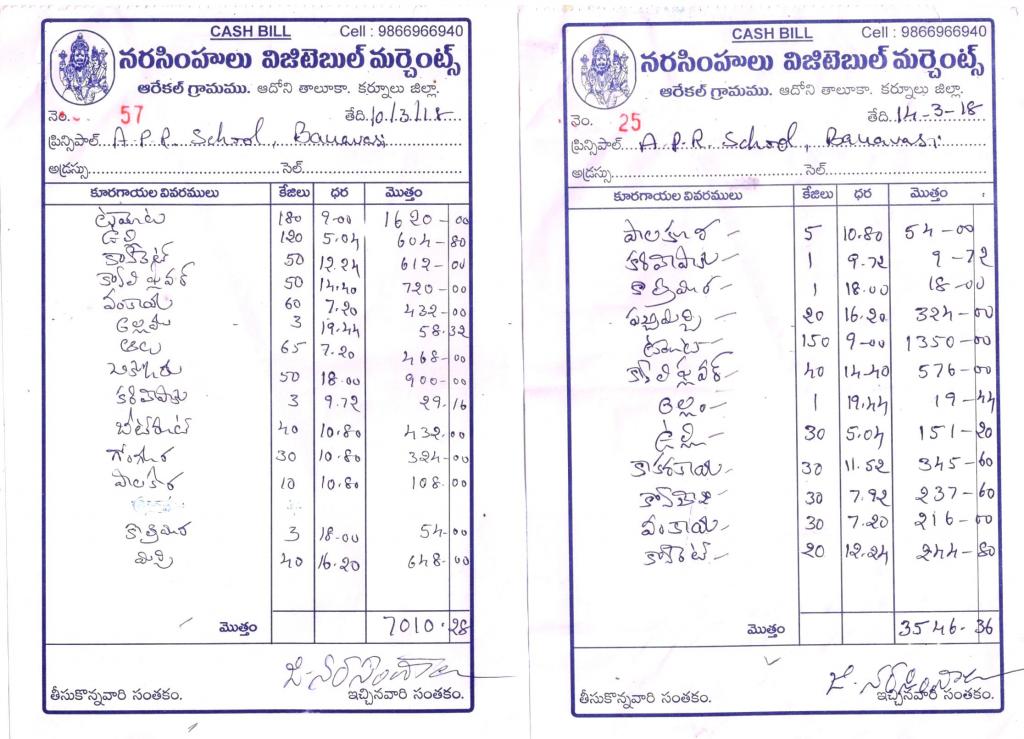 CASH BILL Cell : 9866966940
నరసింహులు విజిటెబుల్ మర్చెంట్స్
ఆరేకల్ గ్రామము. ఆదోని తాలూకా. కర్నూలు జిల్లా.
నెం. 57 తేది.10/3/18
ప్రిన్సిపాల్ A.P.R. School, Banavasi
అడ్రస్సు సెల్
కూరగాయల వివరములు కేజిలు ధర మొత్తం
టమాట 180 9-00 1620-00
ఉల్లి 120 5.04 604-80
క్యారెట్ 50 12.24 612-00
క్యాలి ఫ్లవర్ 50 14.40 720-00
వంకాయ 60 7.20 432-00
అల్లము 3 19.44 58.32
ఆలు 65 7.20 468-00
50 18.00 900-00
కరివేపాకు 3 9.72 29.16
బీట్‌రూట్ 40 10.80 432.00
గోంగూర 30 10.80 324-00
పాలకూర 10 10.80 108.00
కొత్తిమిర 3 18-00 54-00
మిర్చి 40 16.20 648.00
మొత్తం 7010.28
తీసుకొన్నవారి సంతకం. ఇచ్చినవారి సంతకం.
CASH BILL Cell : 9866966940
నరసింహులు విజిటెబుల్ మర్చెంట్స్
ఆరేకల్ గ్రామము. ఆదోని తాలూకా. కర్నూలు జిల్లా.
నెం. 25 తేది.14-3-18
ప్రిన్సిపాల్ A.P.R. School, Banavasi
అడ్రస్సు సెల్
కూరగాయల వివరములు కేజిలు ధర మొత్తం
పాలకూర 5 10.80 54-00
కరివేపాకు 1 9.72 9-72
కొత్తిమిర 1 18.00 18-00
పచ్చిమిర్చి 20 16.20 324-00
టమాట 150 9-00 1350-00
క్యాలి ఫ్లవర్ 40 14-40 576-00
అల్లం 1 19.44 19-44
ఉల్లి 30 5.04 151-20
కాకరకాయ 30 11.52 345-60
30 7.92 237-60
వంకాయ 30 7.20 216-00
క్యారెట్ 20 12.24 244-80
మొత్తం 3546-36
తీసుకొన్నవారి సంతకం. ఇచ్చినవారి సంతకం.